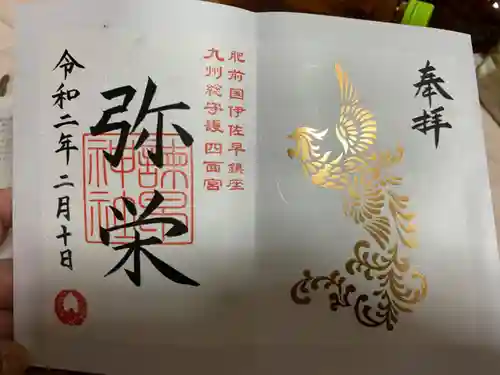 奉拝
肥前国伊佐早鎮座
九州総守護 四面宮
弥栄
諫早神社
令和二年 二月十日